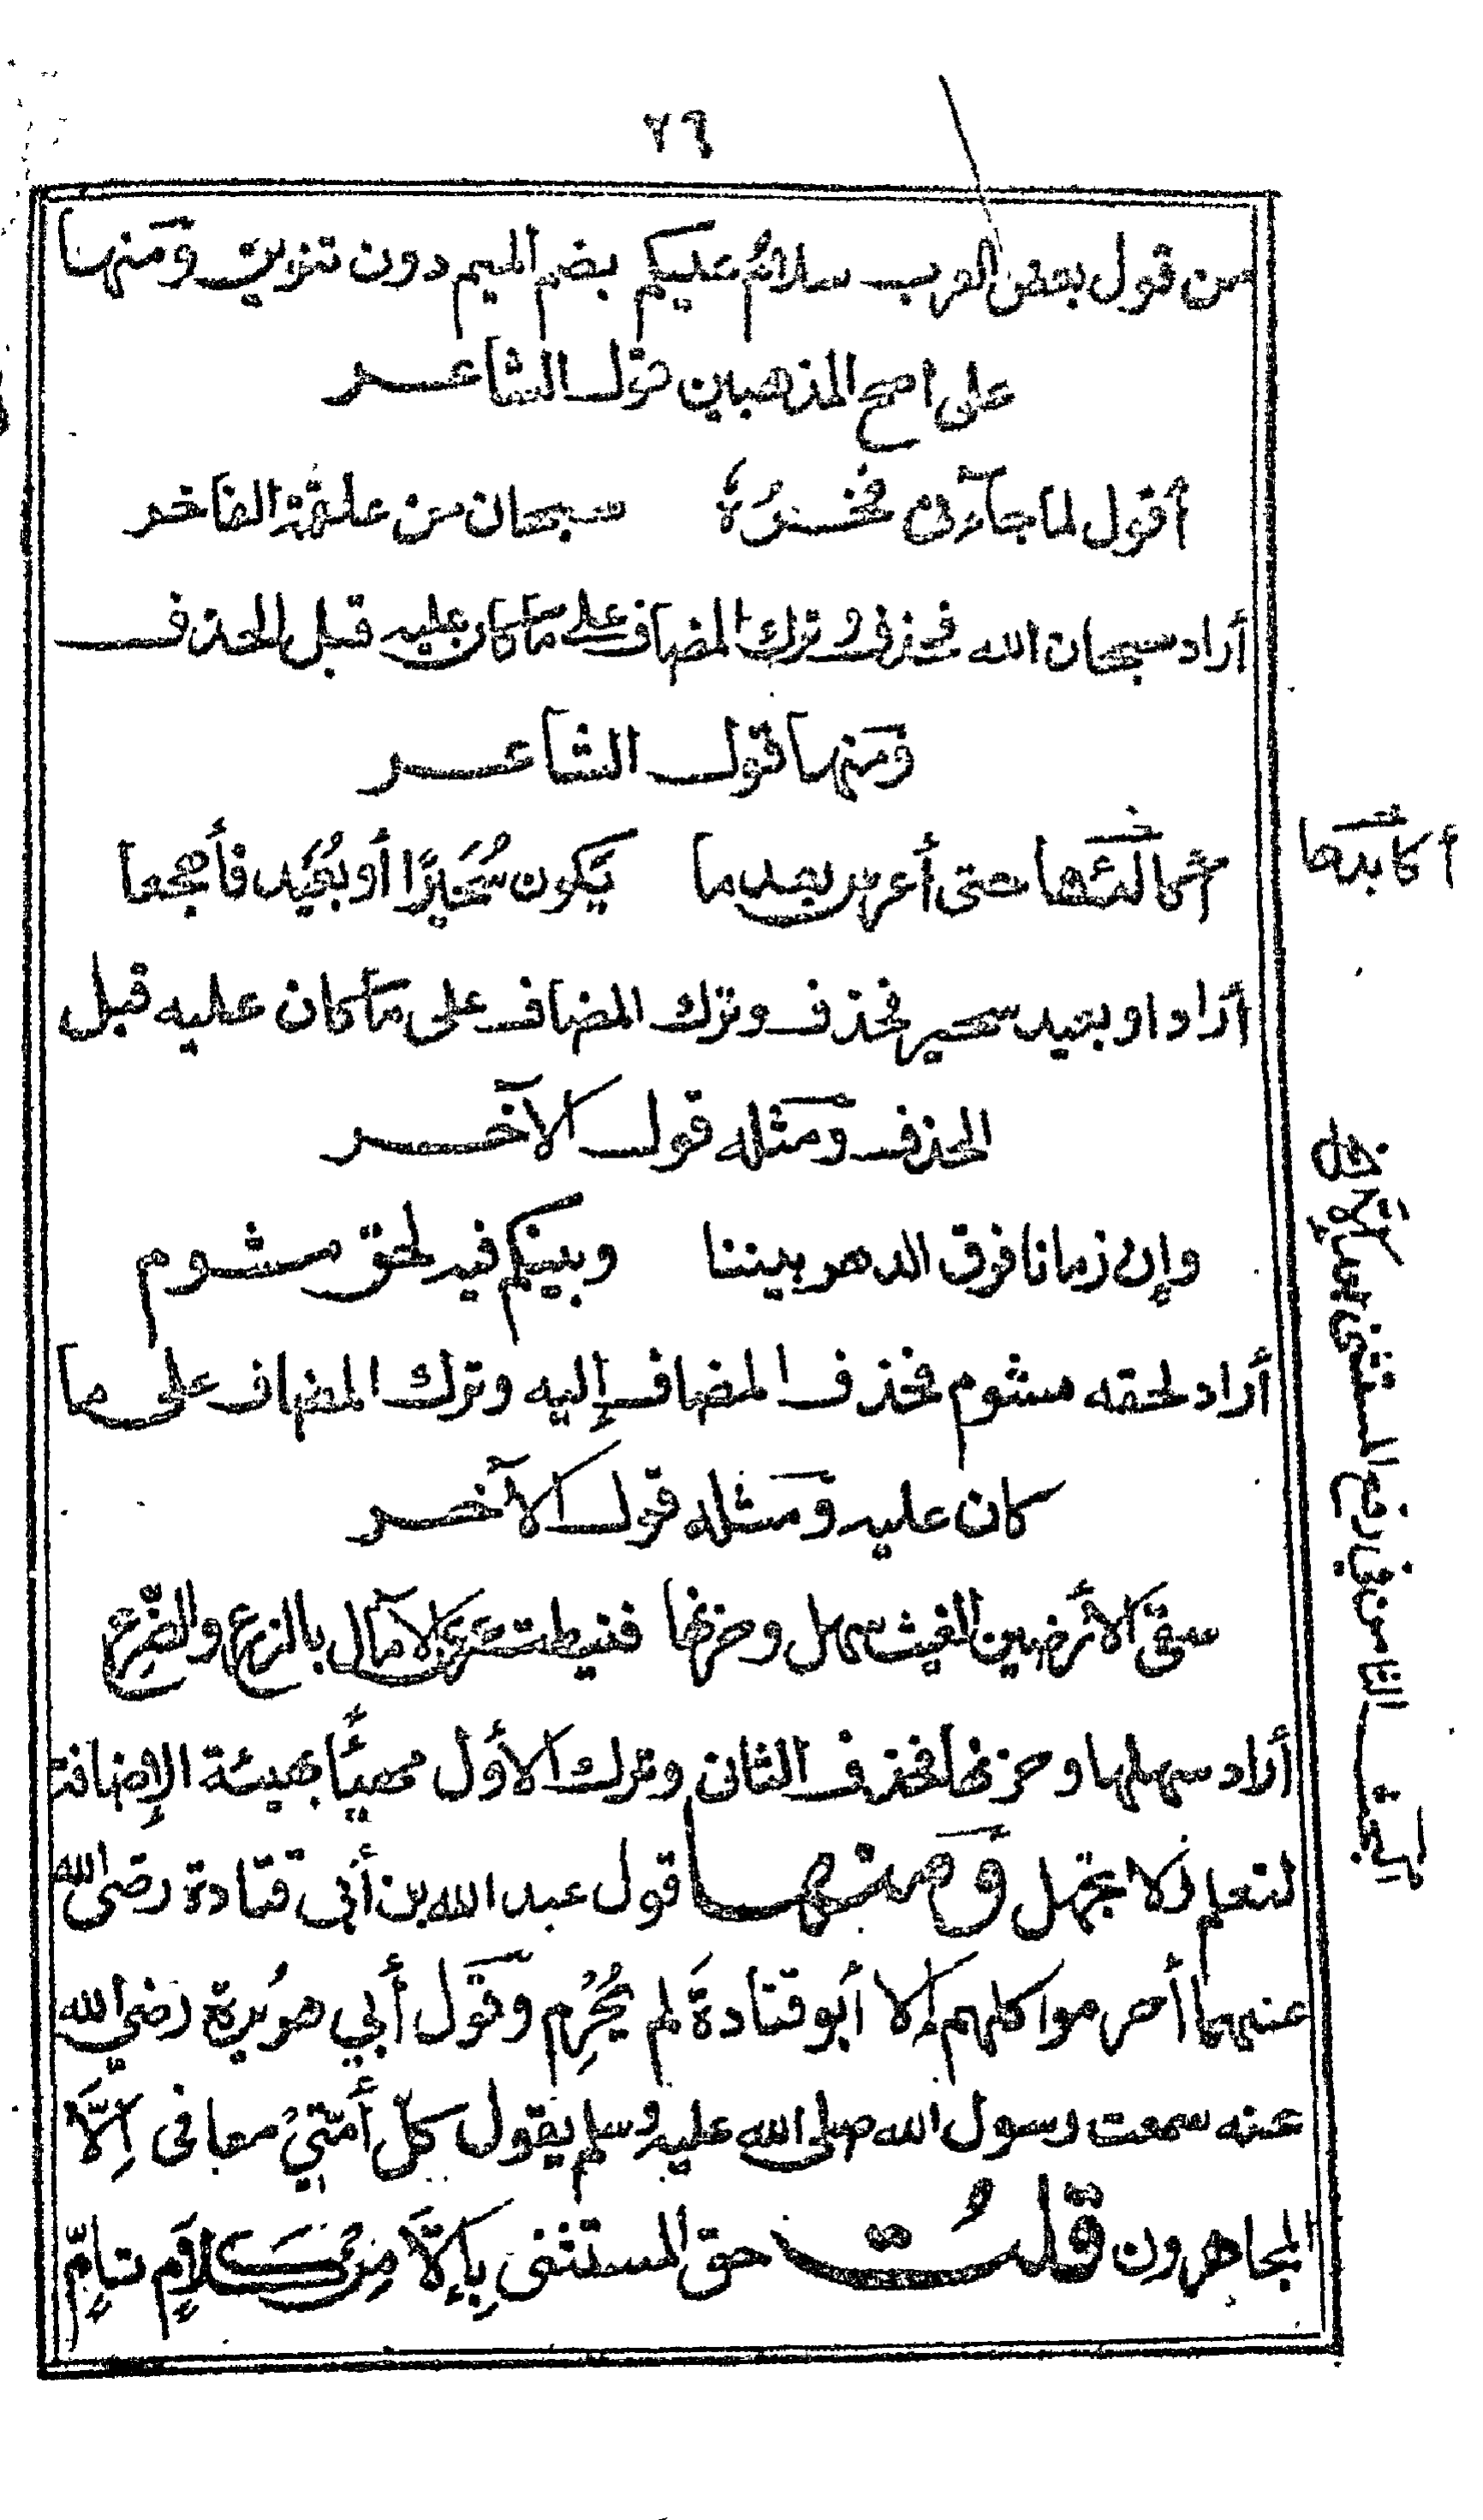 ٢٦
من قول بعض العرب سلامُ عليكم بضم الميم دون تنوين ومنها
على اصح المذهبين قول الشاعر
أقول لما جآءنى فخرُهُ سبحان من علقمة الفاخر
أراد سبحان الله فحذف وترك المضاف على ما كان عليه قبل الحذف
ومنها قول الشاعر
أكالئها حتى أعرس بعد ما يكون سُحَيرًا أو بُعَيد فأهجعا
أكابدها
أراد او بعيد سحير فحذف وترك المضاف على ما كان عليه قبل
الحذف ومثله قول الآخر
وإن زمانا فرق الدهر بيننا وبينكم فيه لحق مشوم
أراد لحقه مشوم فحذف المضاف إليه وترك المضاف على ما
كان عليه ومثله قول الآخر
سقى الأرضين الغيث سهل وحزنها فنيطت عرى الآمال بالزرع والضّرع
أراد سهلها وحزنها فحذف الثانى وترك الأول مهيئًا بهيئة الإضافة
لتعلم ولا تجهل ومنها قول عبد الله بن أبى قتادة رضى الله
عنهما أحرموا كلهم إلا أبو قتادةَ لم يُحْرِم وقول أبي هرُيرة رضي الله
عنه سمعت رسول الله صلى الله عليه وسلم يقول كلّ أمّتيْ معافى إلَّا
المجاهرون قلتُ حق المستثنى بِإلَّا مِنْ كلاَمٍ تامٍّ